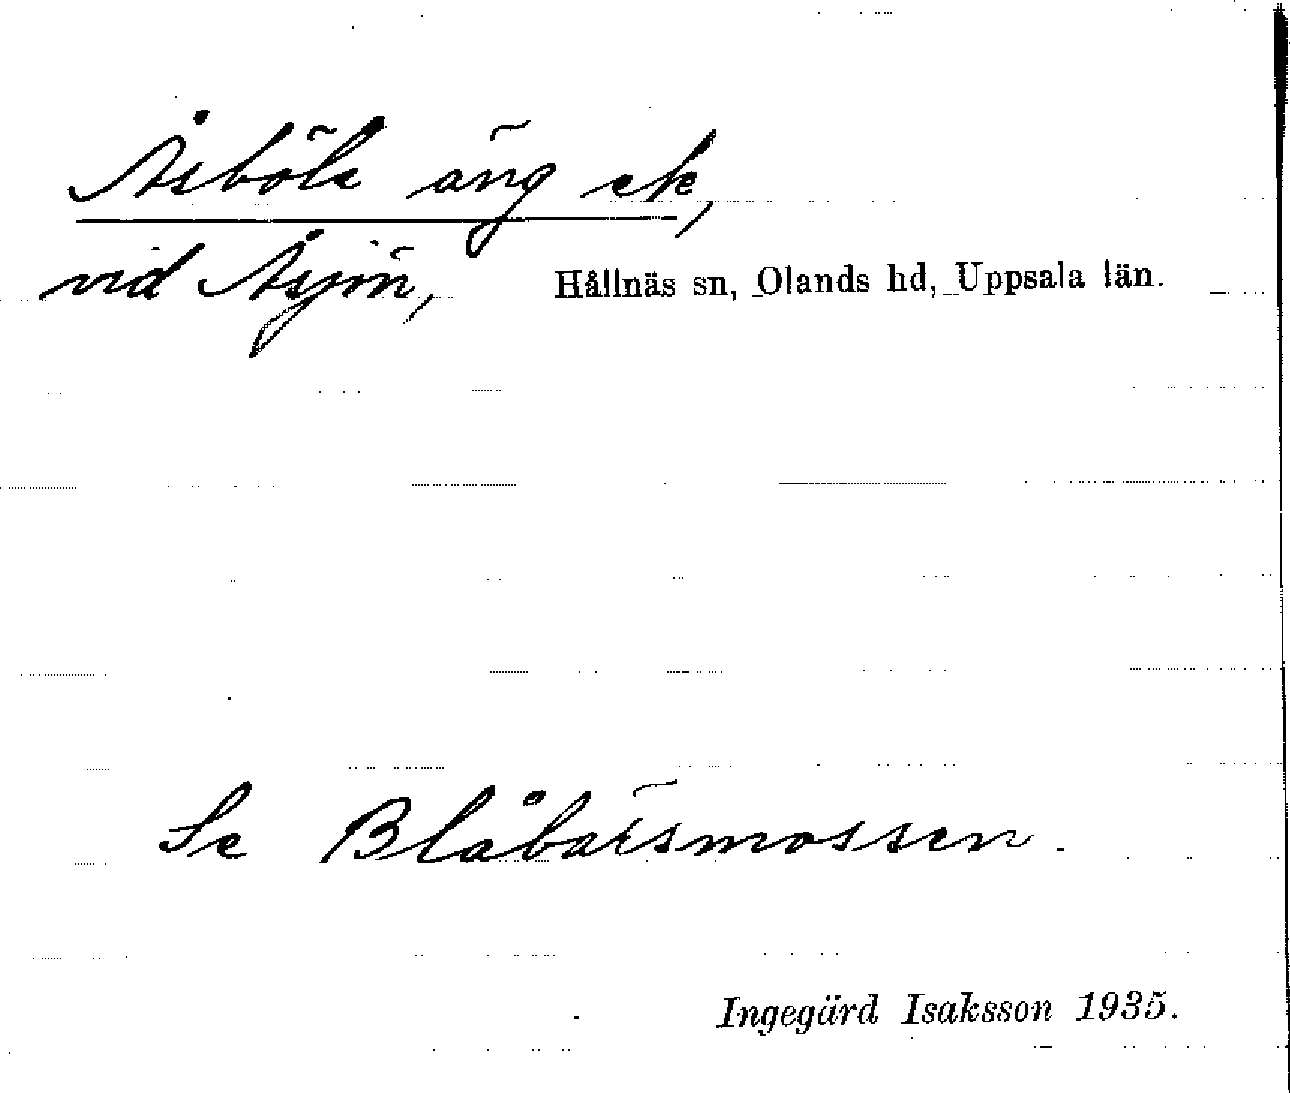 Åsböle äng etc,
vid Åsjön, Hållnäs sn, Olands hd, Uppsala län.
Se Blåbärsmossen.
Ingegärd Isaksson 1935.